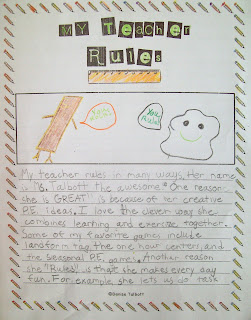 My Teacher
Rules
You Rule!
My teacher rules in many ways. Her name
is Ms. Talbott the awesome. One reason
she is GREAT! is because of her creative
P.E. ideas. I love the clever way she
combines learning and exercise together.
Some of my favorite games include
landform tag, the one hour center, and
the seasonal P.E. game. Another reason
she "Rules" is that she makes every day
fun. For example she lets us do desk
©Denise Talbott